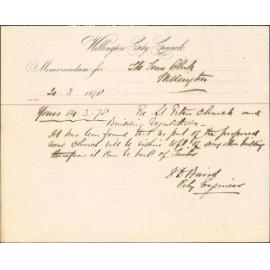 Wellington City Council
Memorandum for The Town Clerk
Wellington
20 . 3 1878
Yours 14-3-78 Re St Peters Church and
Building regulations
It has been found that as part of the proposed
new Church will be within of any other building
therefore it can be built of Timber
Baird
City Engineer